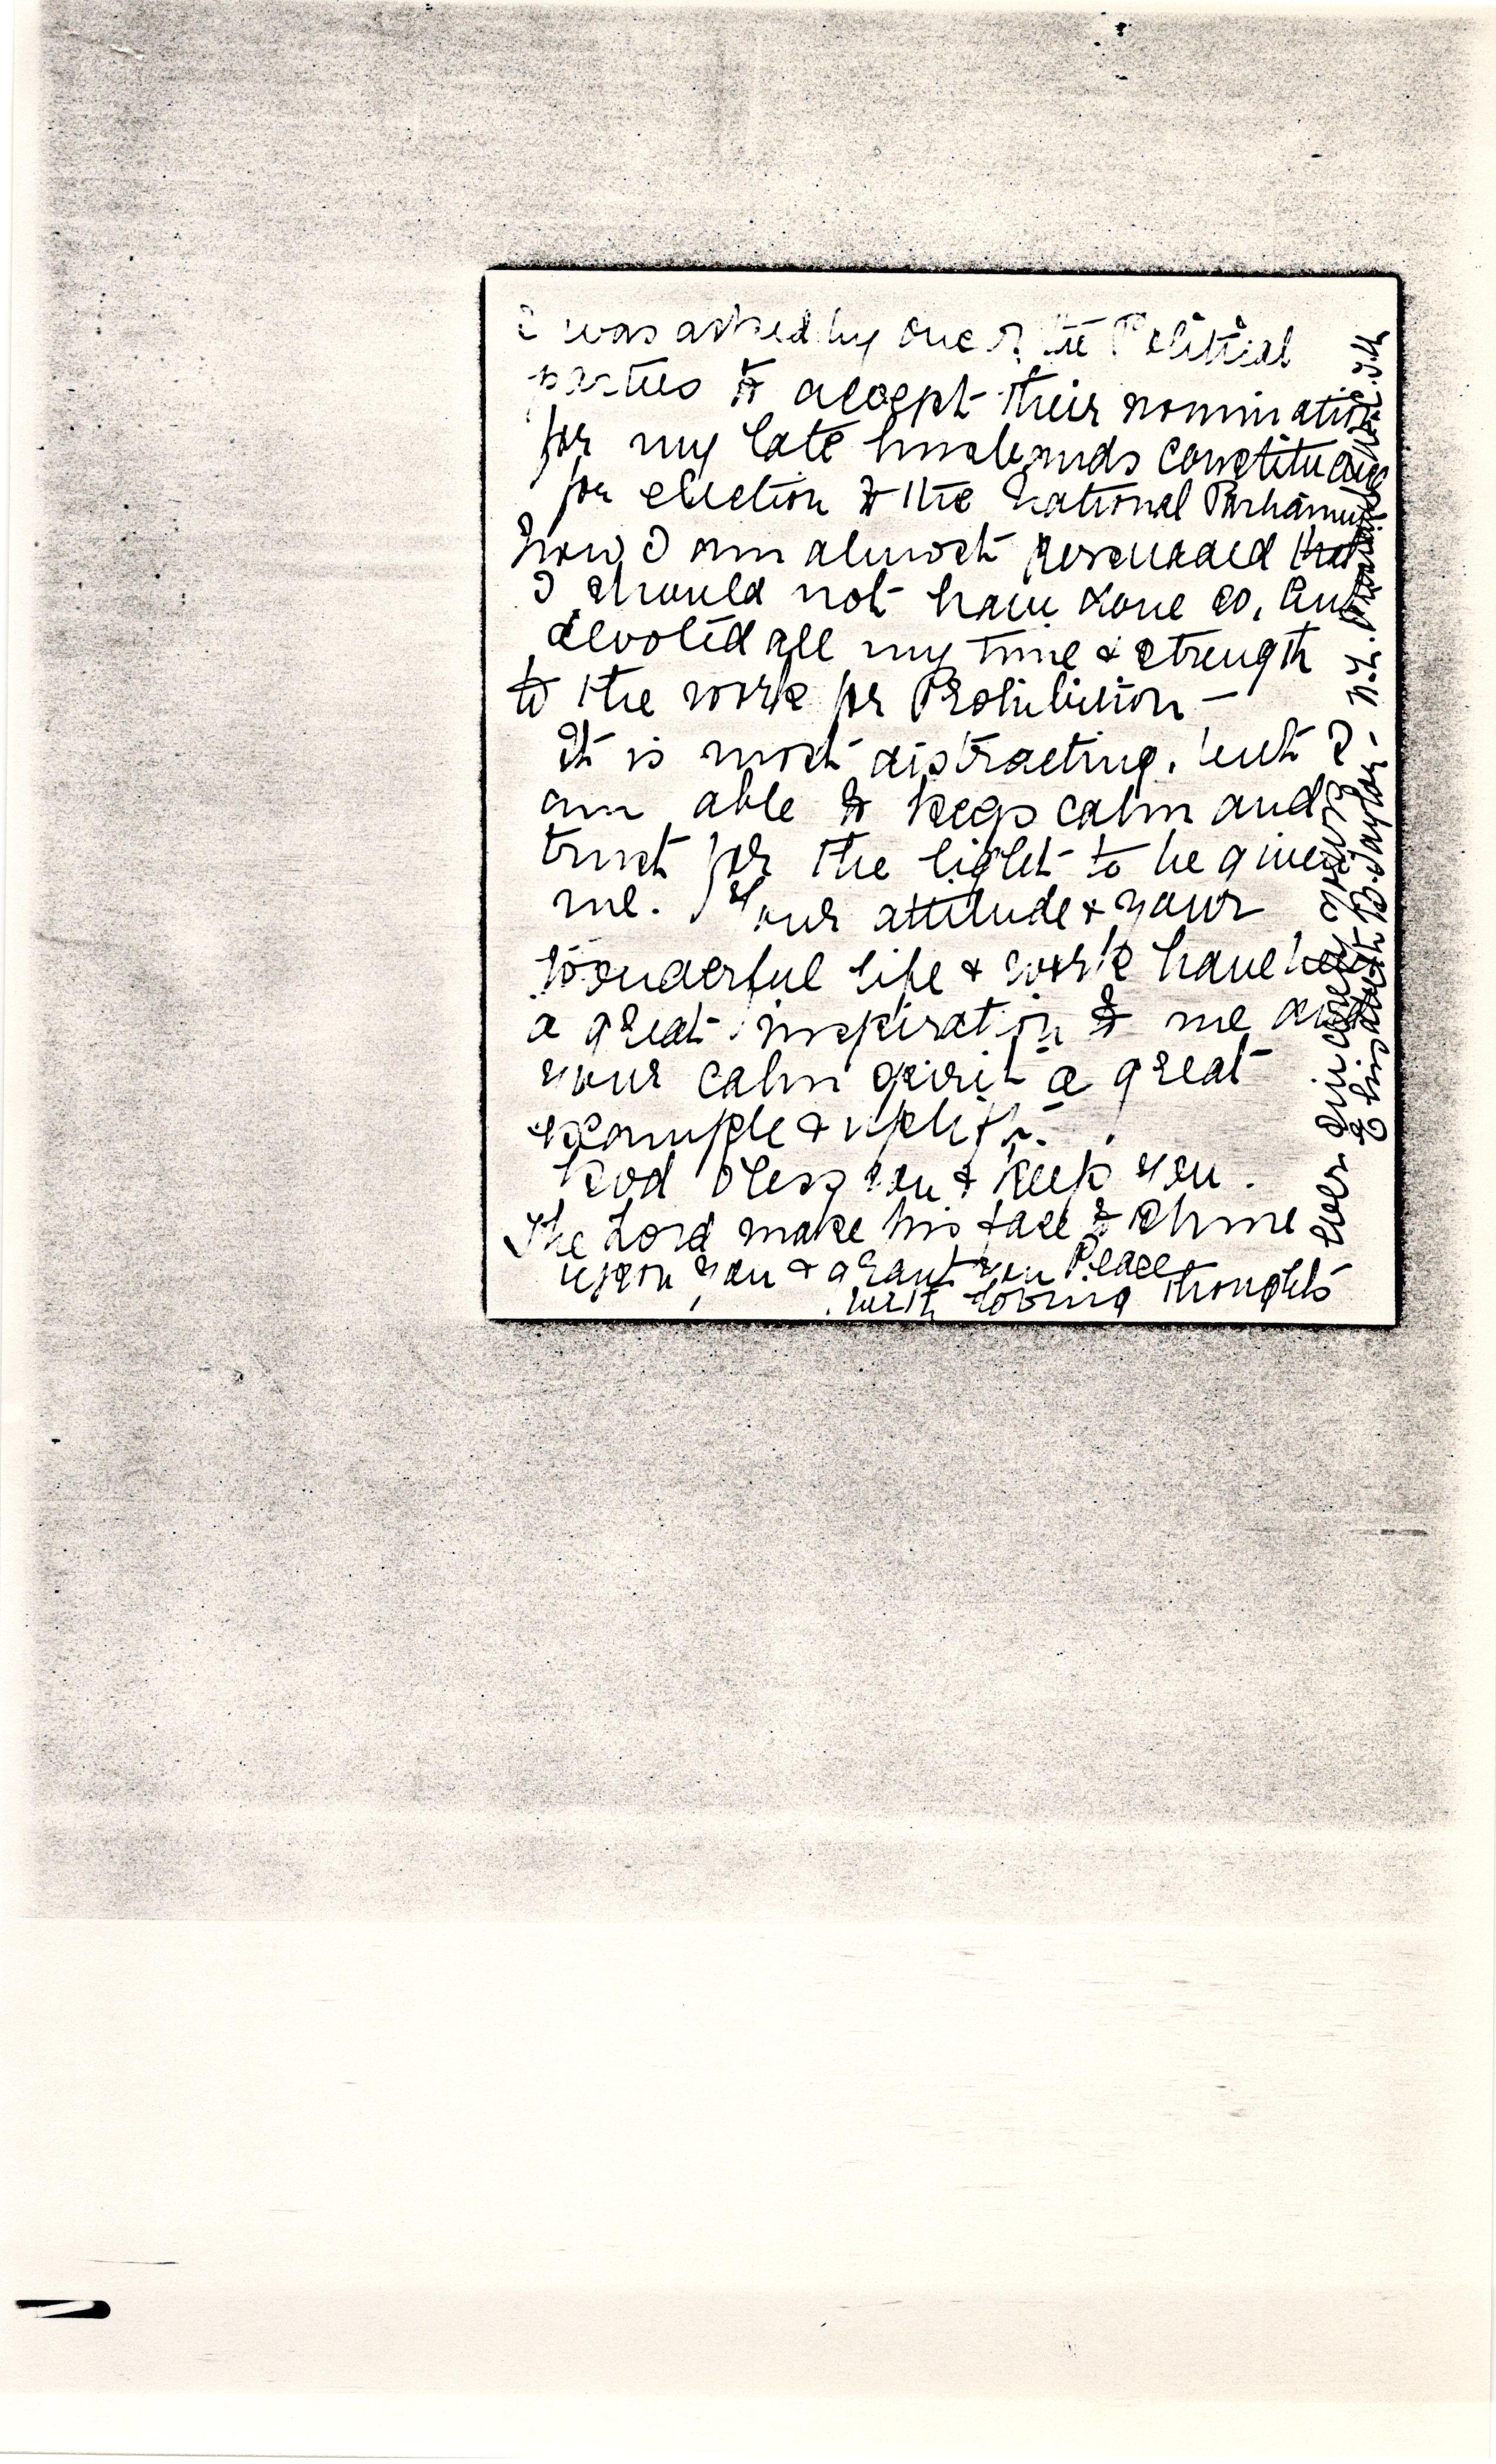 I was asked by one of the Political
parties to accept their nomination
for my late husbands constituency
for election to the National Parliament
now I am almost persuaded that
I should not have done so, and
devoted all my time & strength
to the work for Prohibition -
It is most distracting, but I
am able to keep calm and
trust for the light to be given
me. Your attitude & your
wonderful life & work have been
a great inspiration to me and
your calm spirit a great
example & uplift.
God bless you & keep you.
The Lord make his face to shine
upon you & grant you Peace
with loving thoughts
Ever sincerely yours
Elizabeth B. Taylor - N.Z.